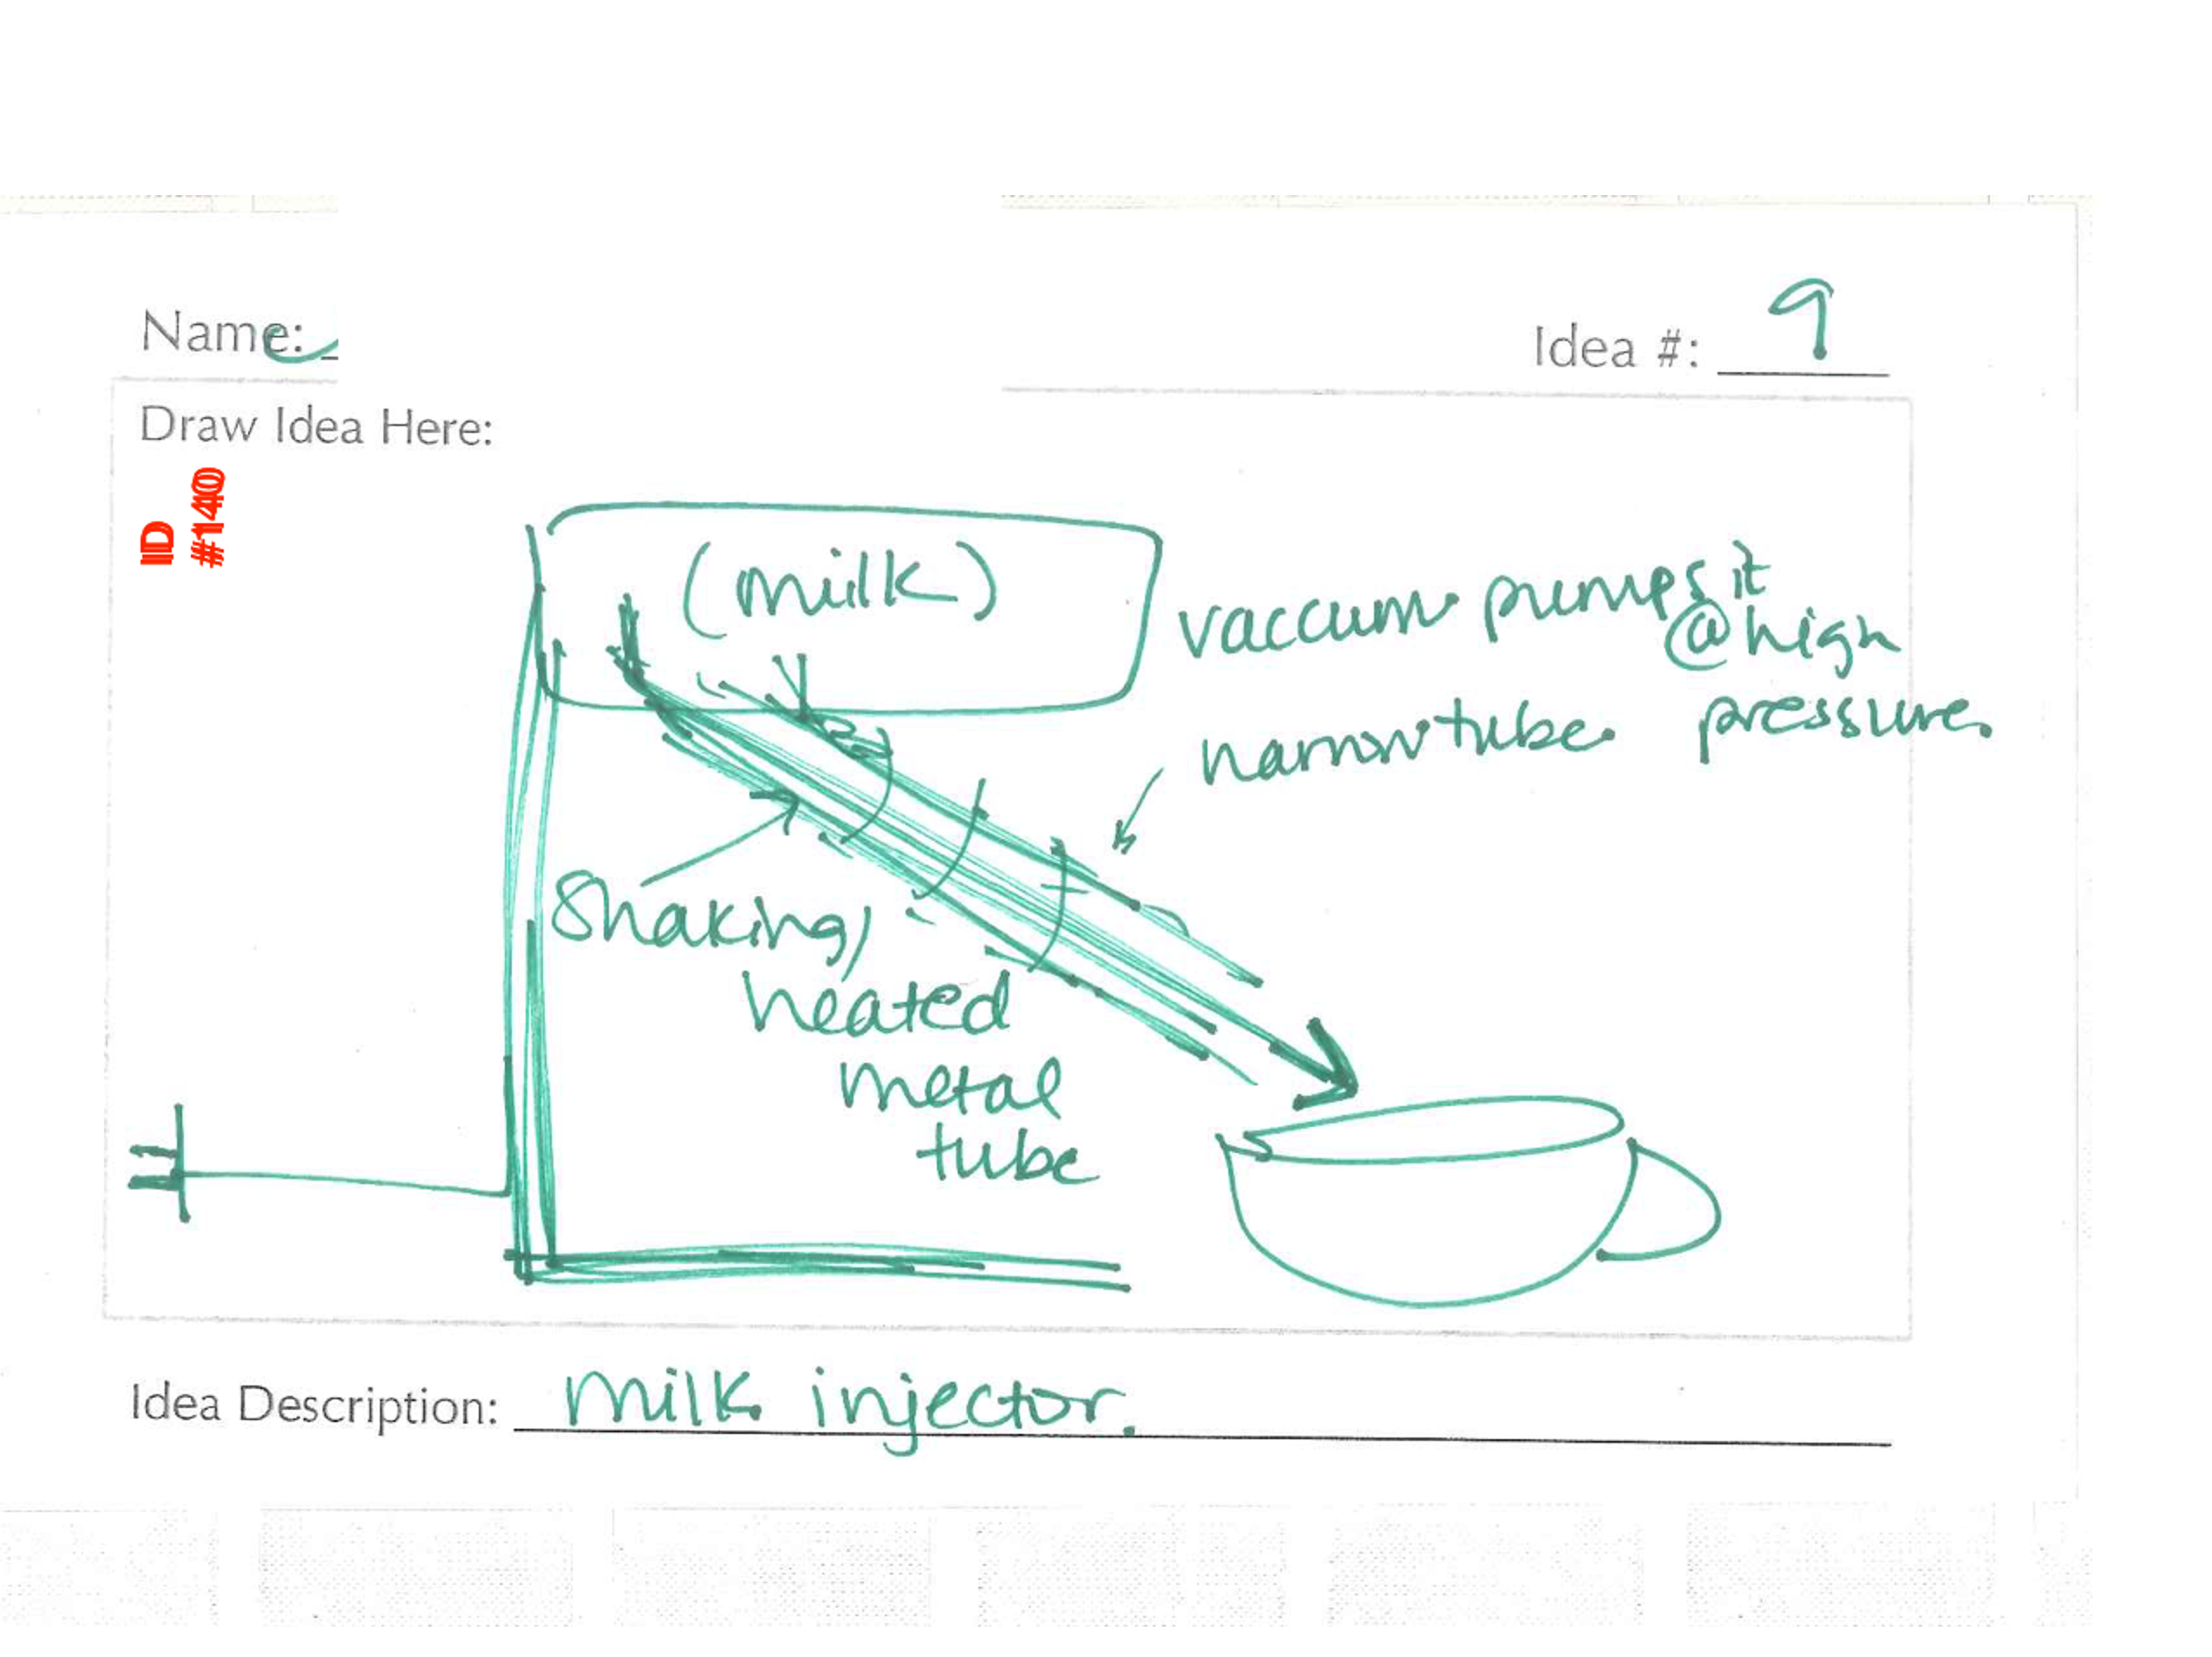 Name:
Idea #: 9
Draw Idea Here:
ID
#1440
(milk)
vaccum pumps it
@ high
pressure.
narrow tube.
Shaking,
heated
metal
tube
Idea Description: milk injector.